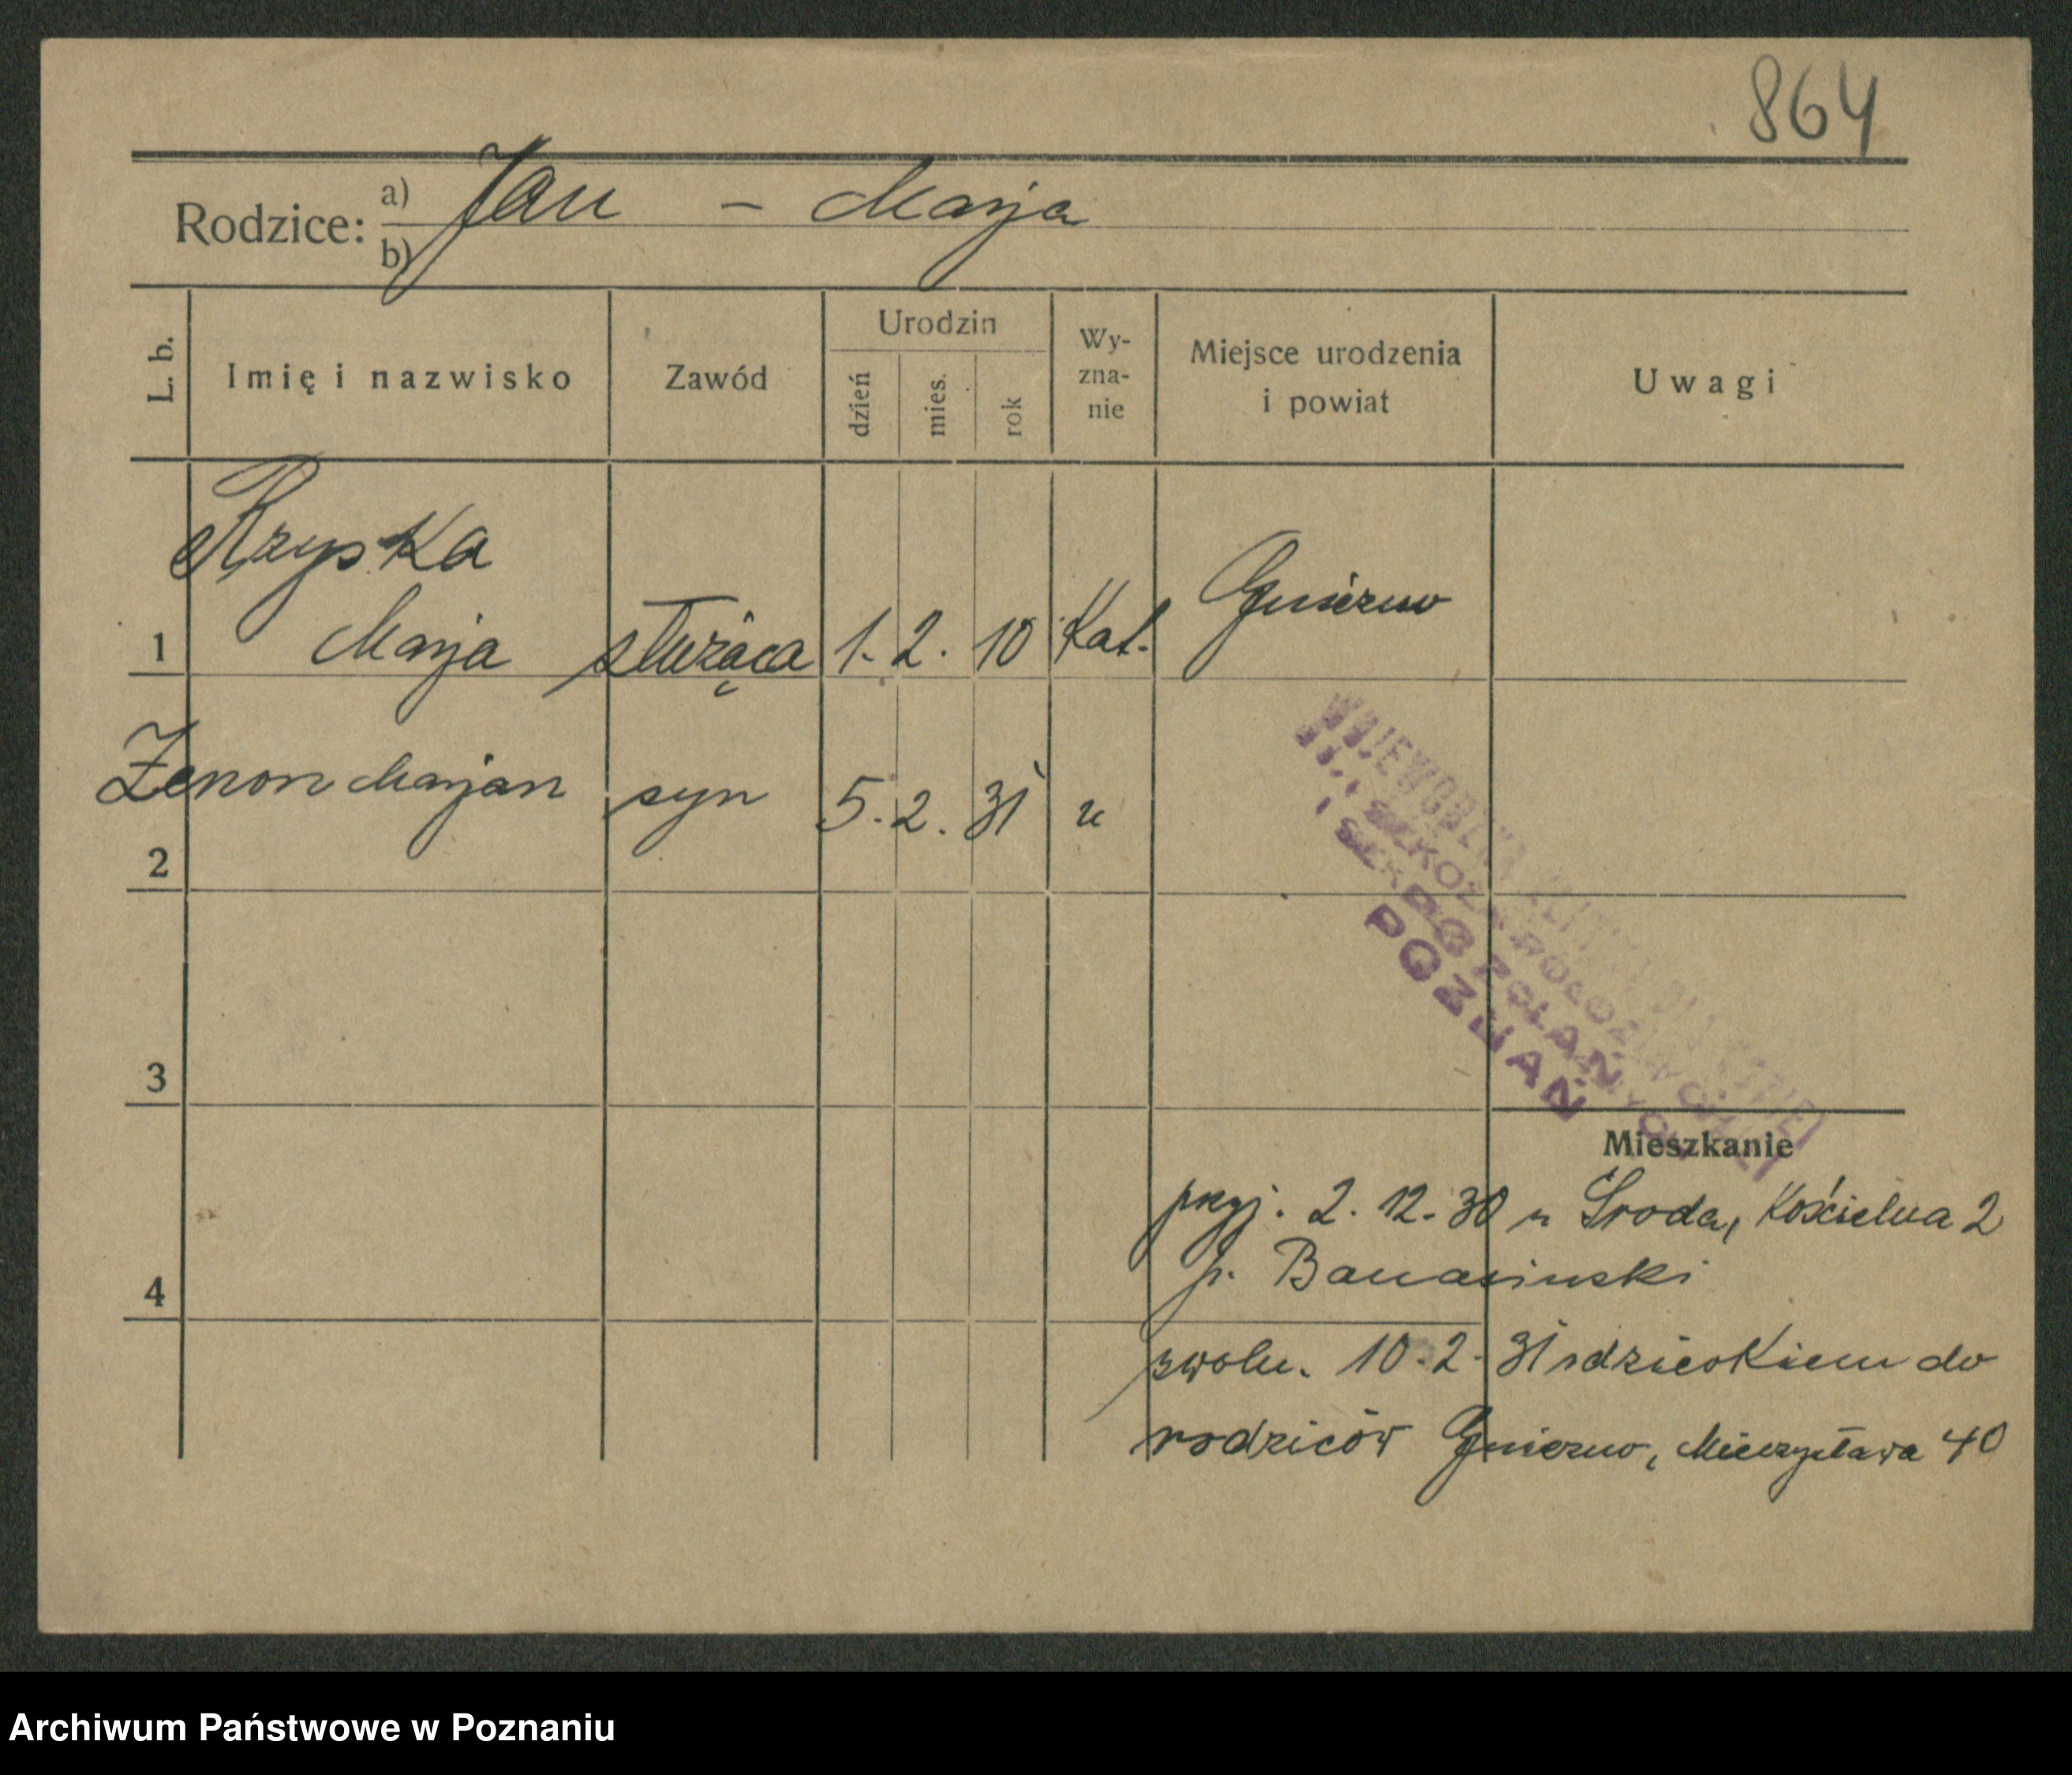 864
Rodzice: a) Jan - Marja
b)
L. b. Imię i nazwisko Zawód Urodzin dzień mies. rok Wy-zna-nie Miejsce urodzenia i powiat Uwagi
Rzyska
1 Marja służąca 1. 2. 10 Kat. Gniezno
Zenon Marjan syn 5. 2. 31 "
2
3
POZNAŃ
Mieszkanie
przyj. 2. 12. 30 z Środa, Kościelna 2
p. Banasinski
4
zwoln. 10. 2. 31 z dzieckiem do
rodziców Gniezno, Mieczysława 40
Archiwum Państwowe w Poznaniu